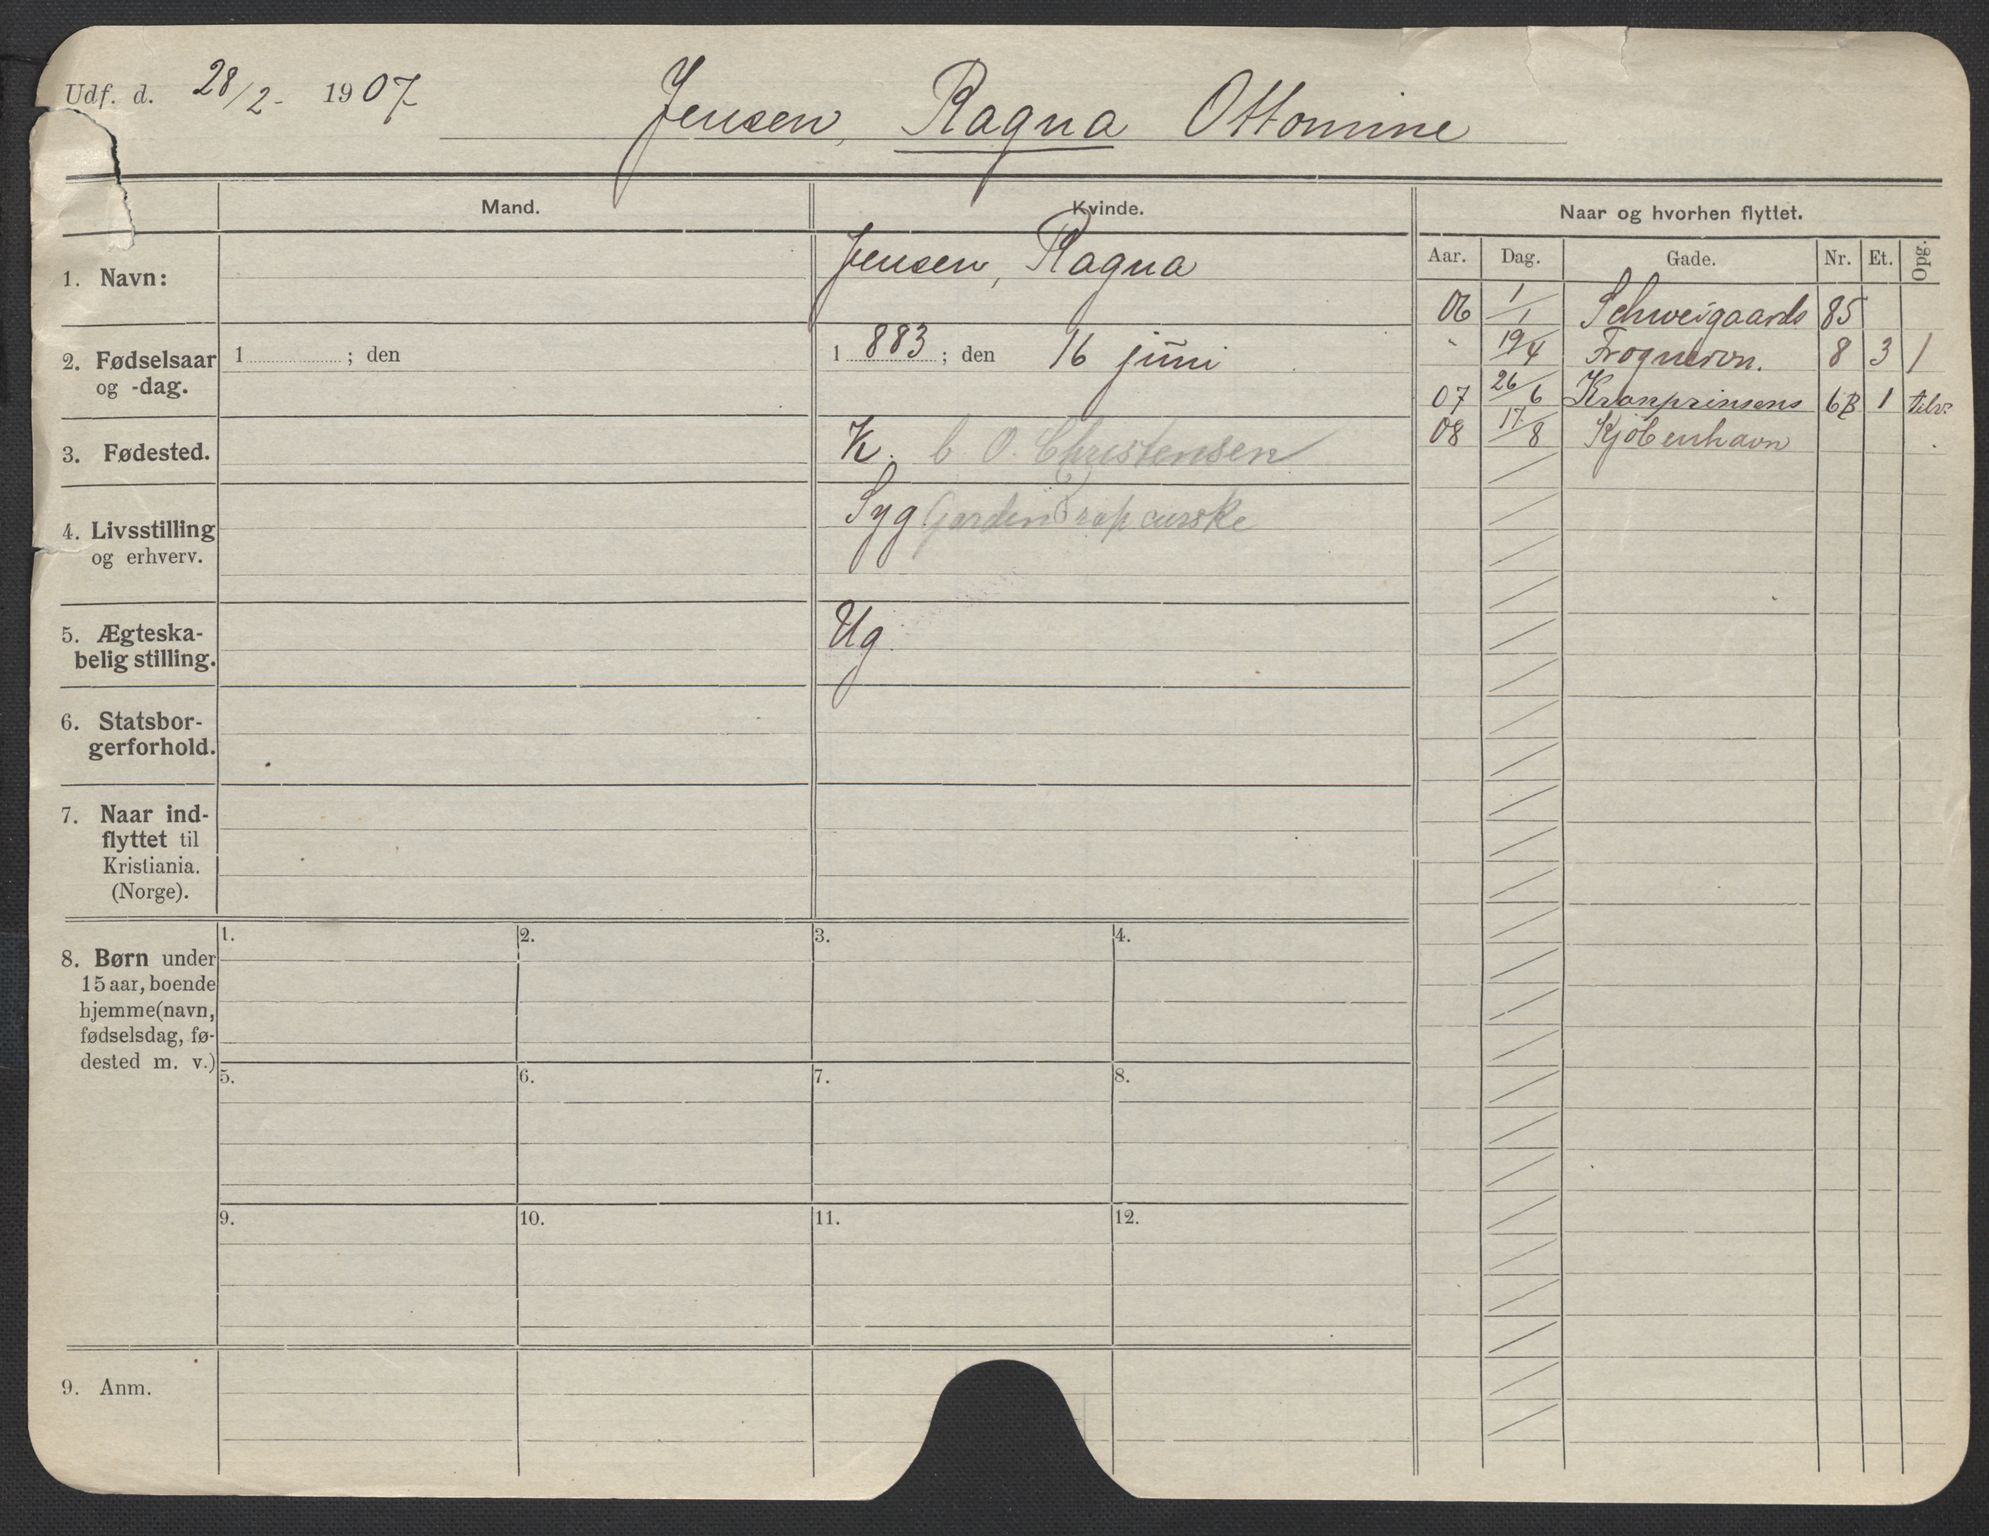 Udf. d. 28/2- 1907
Jensen, Ragna Ottomine
Mand.
Kvinde.
Naar og hvorhen flyttet.
Aar. Dag. Gade. Nr. Et. Opg.
1. Navn:
Jensen, Ragna
2. Fødselsaar
og -dag.
1 ; den
1 883 ; den 16 juni
3. Fødested.
K. C O. Christensen
4. Livsstilling
og erhverv.
Syg Garden
5. Ægteska-
belig stilling.
Ug
6. Statsbor-
gerforhold.
7. Naar ind-
flyttet til
Kristiania.
(Norge).
8. Børn under
15 aar, boende
hjemme (navn,
fødselsdag, fø-
dested m. v.)
1. 2. 3. 4.
5. 6. 7. 8.
9. 10. 11. 12.
9. Anm.
06 1/1 Schweigaards 85
" 19/4 Frognervn. 8 3 1
07 26/6 Kronprinsens 6B 1 tilv.
08 17/8 Kjöbenhavn